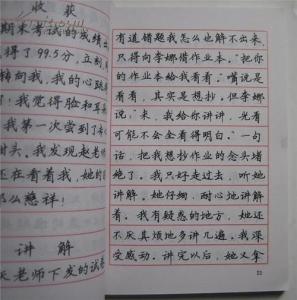 收获
期末考试的成绩出
得了99.5分,立刻,
转向我,我的心跳
!我觉得脸和耳
我第一次尝到了
甜头。我发现赵老师
还在看着我,她的
那么慈祥!
讲解
天老师下发的试卷
有道错题我怎么也解不出来,
只得向李娜借作业本:“把你
的作业本给我看看。”嘴说是
看看,其实是想抄。但李娜
说:“来,我给你讲讲,光看
可能不会全看得明白。”一句
话,把我想抄作业的念头堵
绝了。我只好走过去,听她
讲解。她仔细、耐心地讲解
着。我有疑惑的地方,她还
不厌其烦地多讲几遍。我深
受感动。讲完以后,她又拿